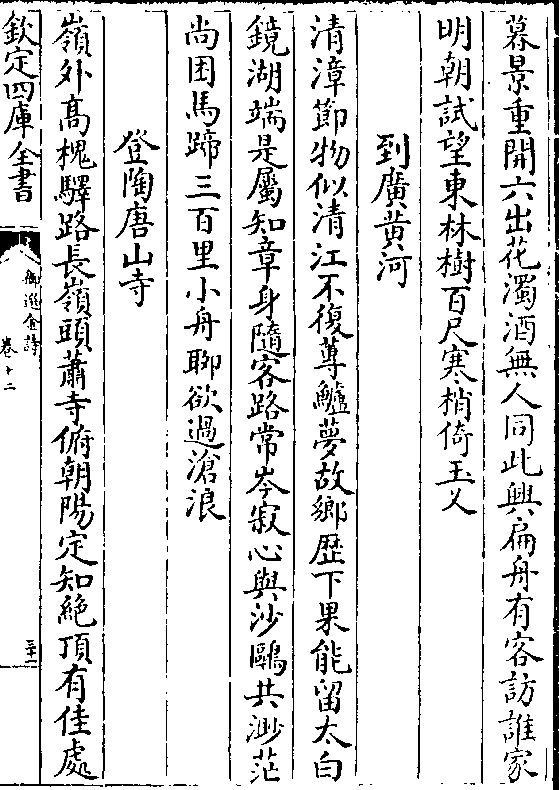 暮景重開六出花濁酒無人同此興扁舟有客訪誰家
明朝試望東林樹百尺寒梢倚玉乂
到廣黄河
清漳節物似清江不復蓴鱸夢故鄉歴下果能留太白
鏡湖端是屬知章身隨客路常岑寂心與沙鷗共渺茫
尚困馬蹄三百里小舟聊欲過滄浪
登陶唐山寺
嶺外髙槐驛路長嶺頭蕭寺俯朝陽定知絶頂有佳處
欽定四庫全書
御選金詩
卷十二
三十一